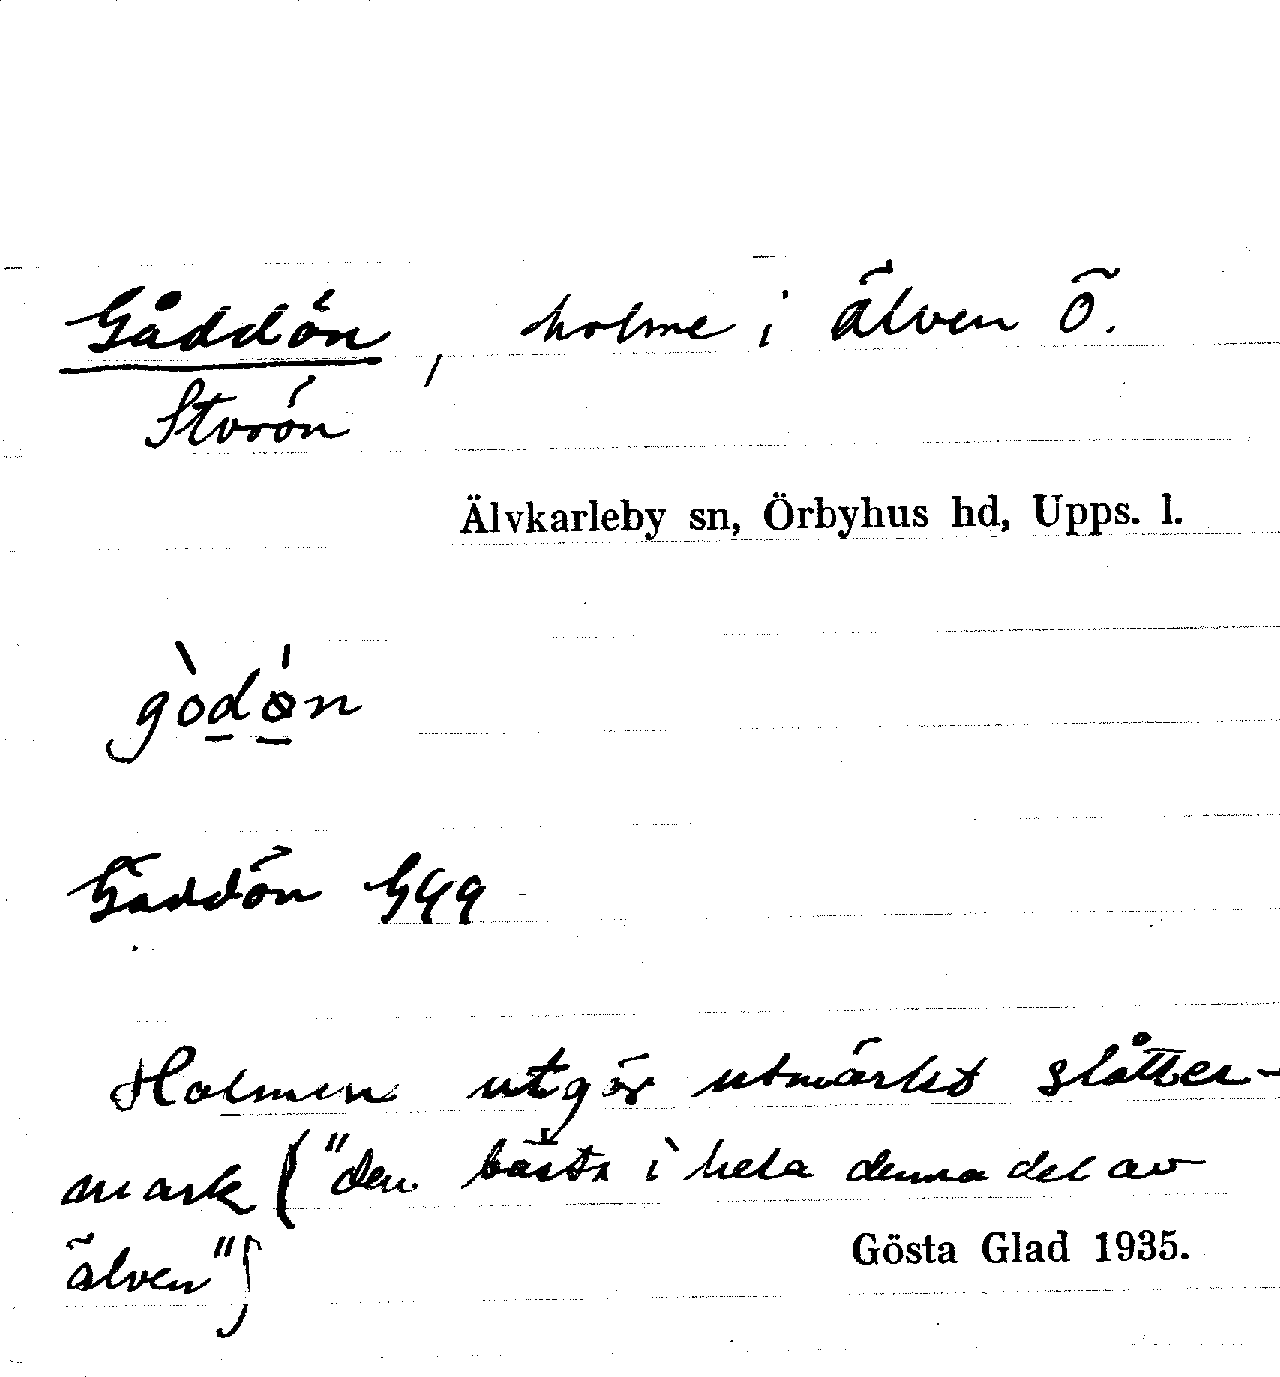 Gåddön, holme i älven Ö.
Storön
Älvkarleby sn, Örbyhus hd, Upps. l.
gòdǿn
Gäddön G49
Holmen utgör utmärkt slåtter-
mark ("den bästa i hela denna del av
älven")
Gösta Glad 1935.